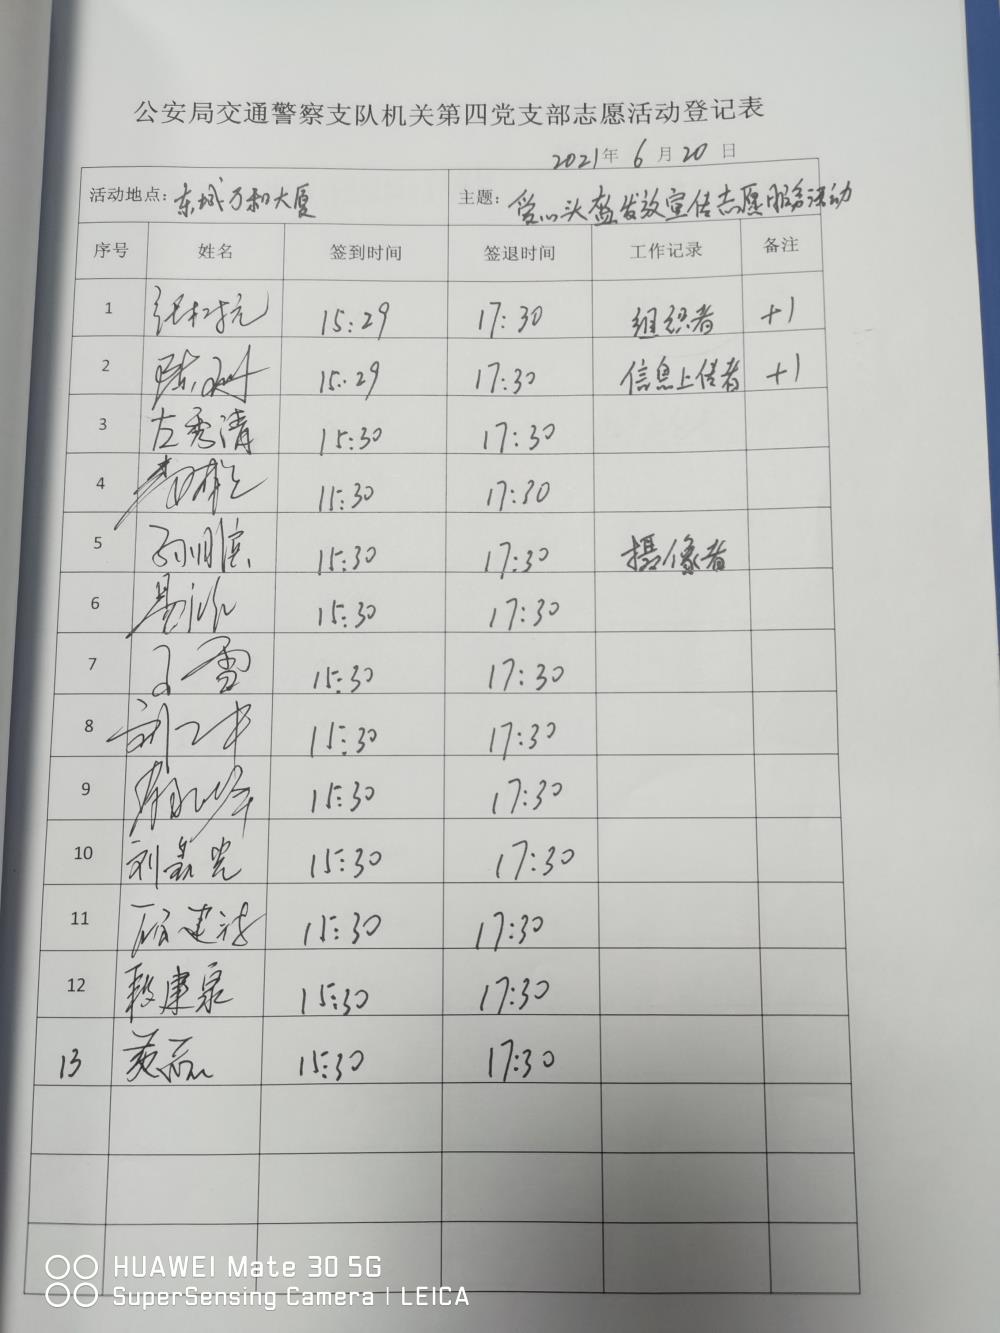 公安局交通警察支队机关第四党支部志愿活动登记表
2021年 6 月 20 日
活动地点: 东城万和大厦 主题: 爱心头盔发放宣传志愿服务活动
序号 姓名 签到时间 签退时间 工作记录 备注
1 15:29 17:30 组织者 +1
2 15:29 17:30 信息上传者 +1
3 左秀清 15:30 17:30
4 15:30 17:30
5 15:30 17:30 摄像者
6 15:30 17:30
7 王雪 15:30 17:30
8 15:30 17:30
9 15:30 17:30
10 刘 15:30 17:30
11 15:30 17:30
12 段康泉 15:30 17:30
13 15:30 17:30
HUAWEI Mate 30 5G
SuperSensing Camera | LEICA